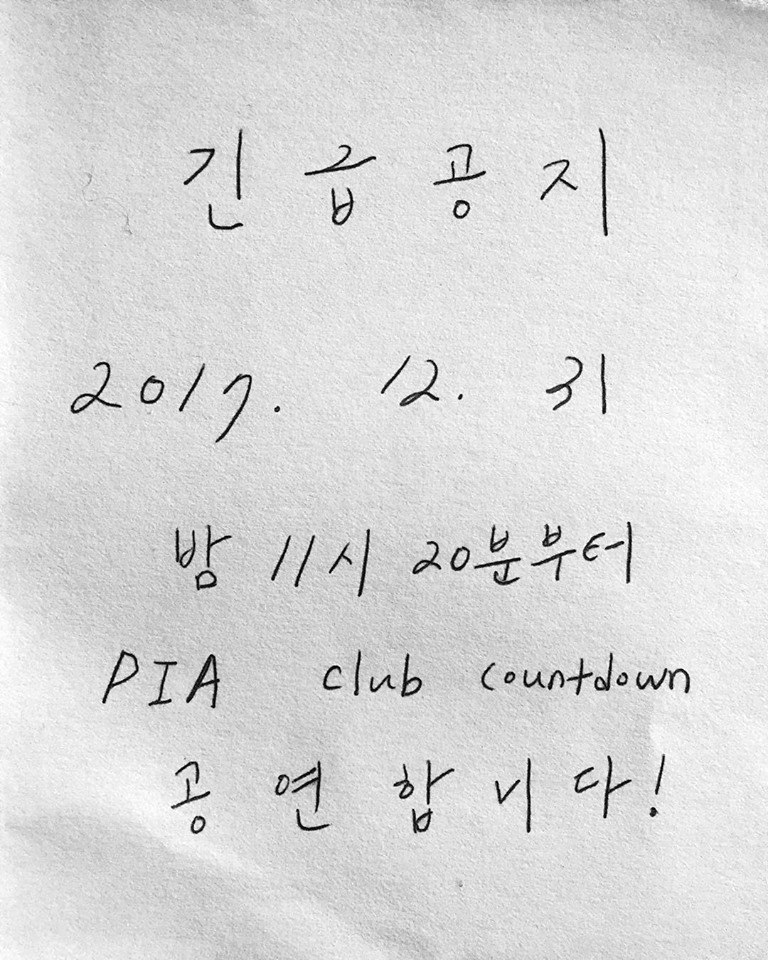 긴급공지
2017. 12. 31
밤 11시 20분부터
PIA club countdown
공연합니다!